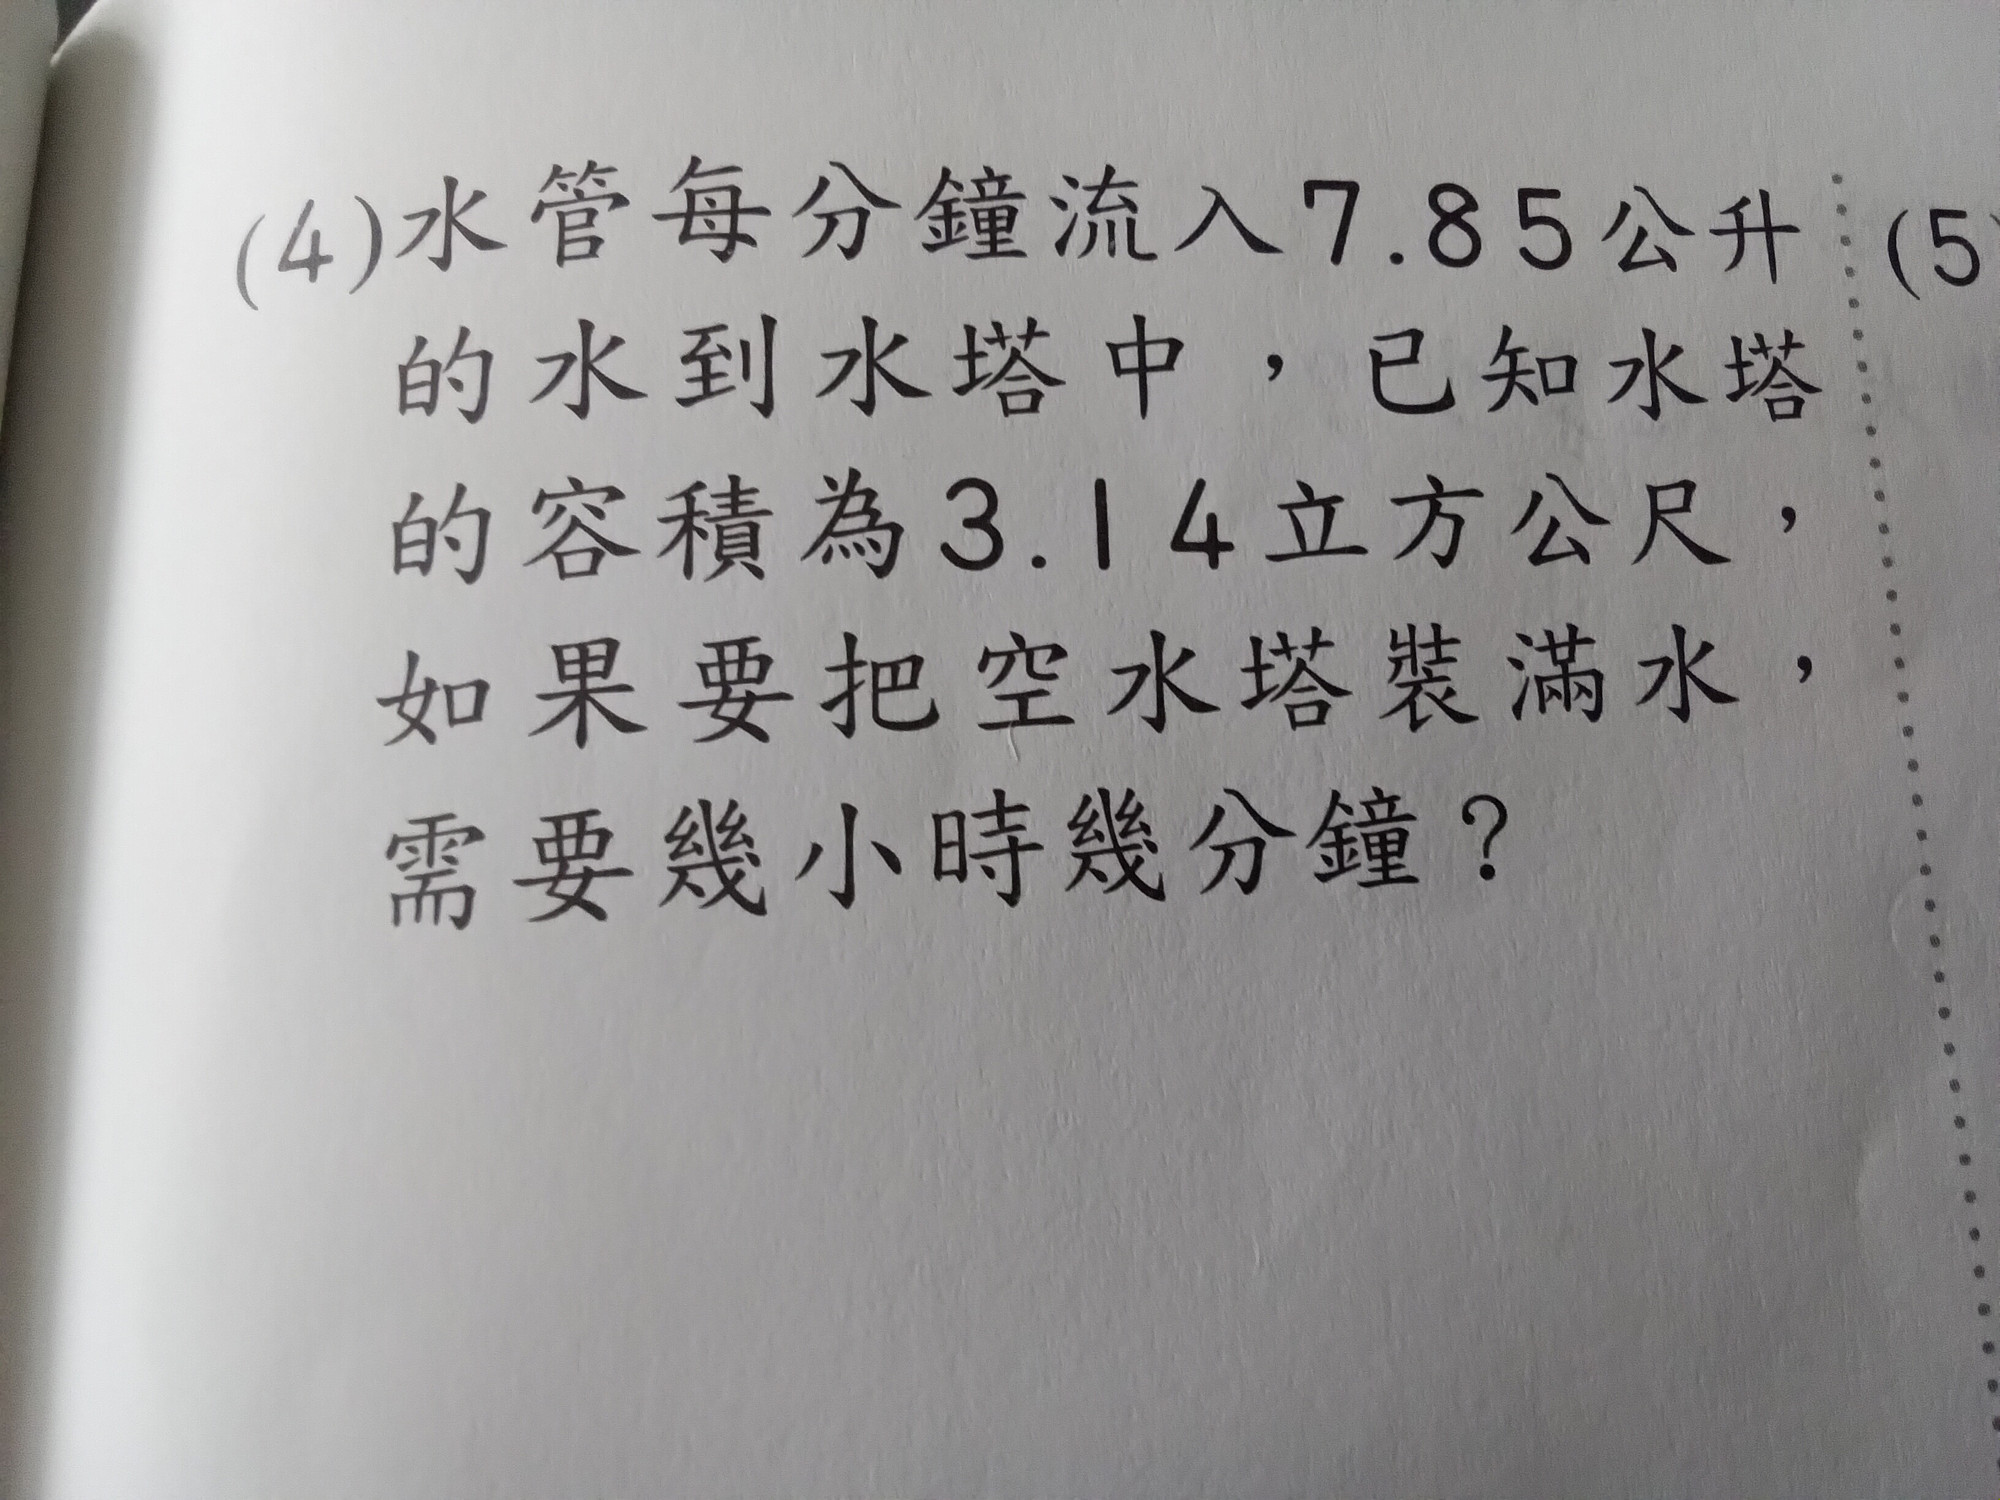 (4)水管每分鐘流入7.85公升
的水到水塔中，已知水塔
的容積為3.14立方公尺，
如果要把空水塔裝滿水，
需要幾小時幾分鐘？
(5)